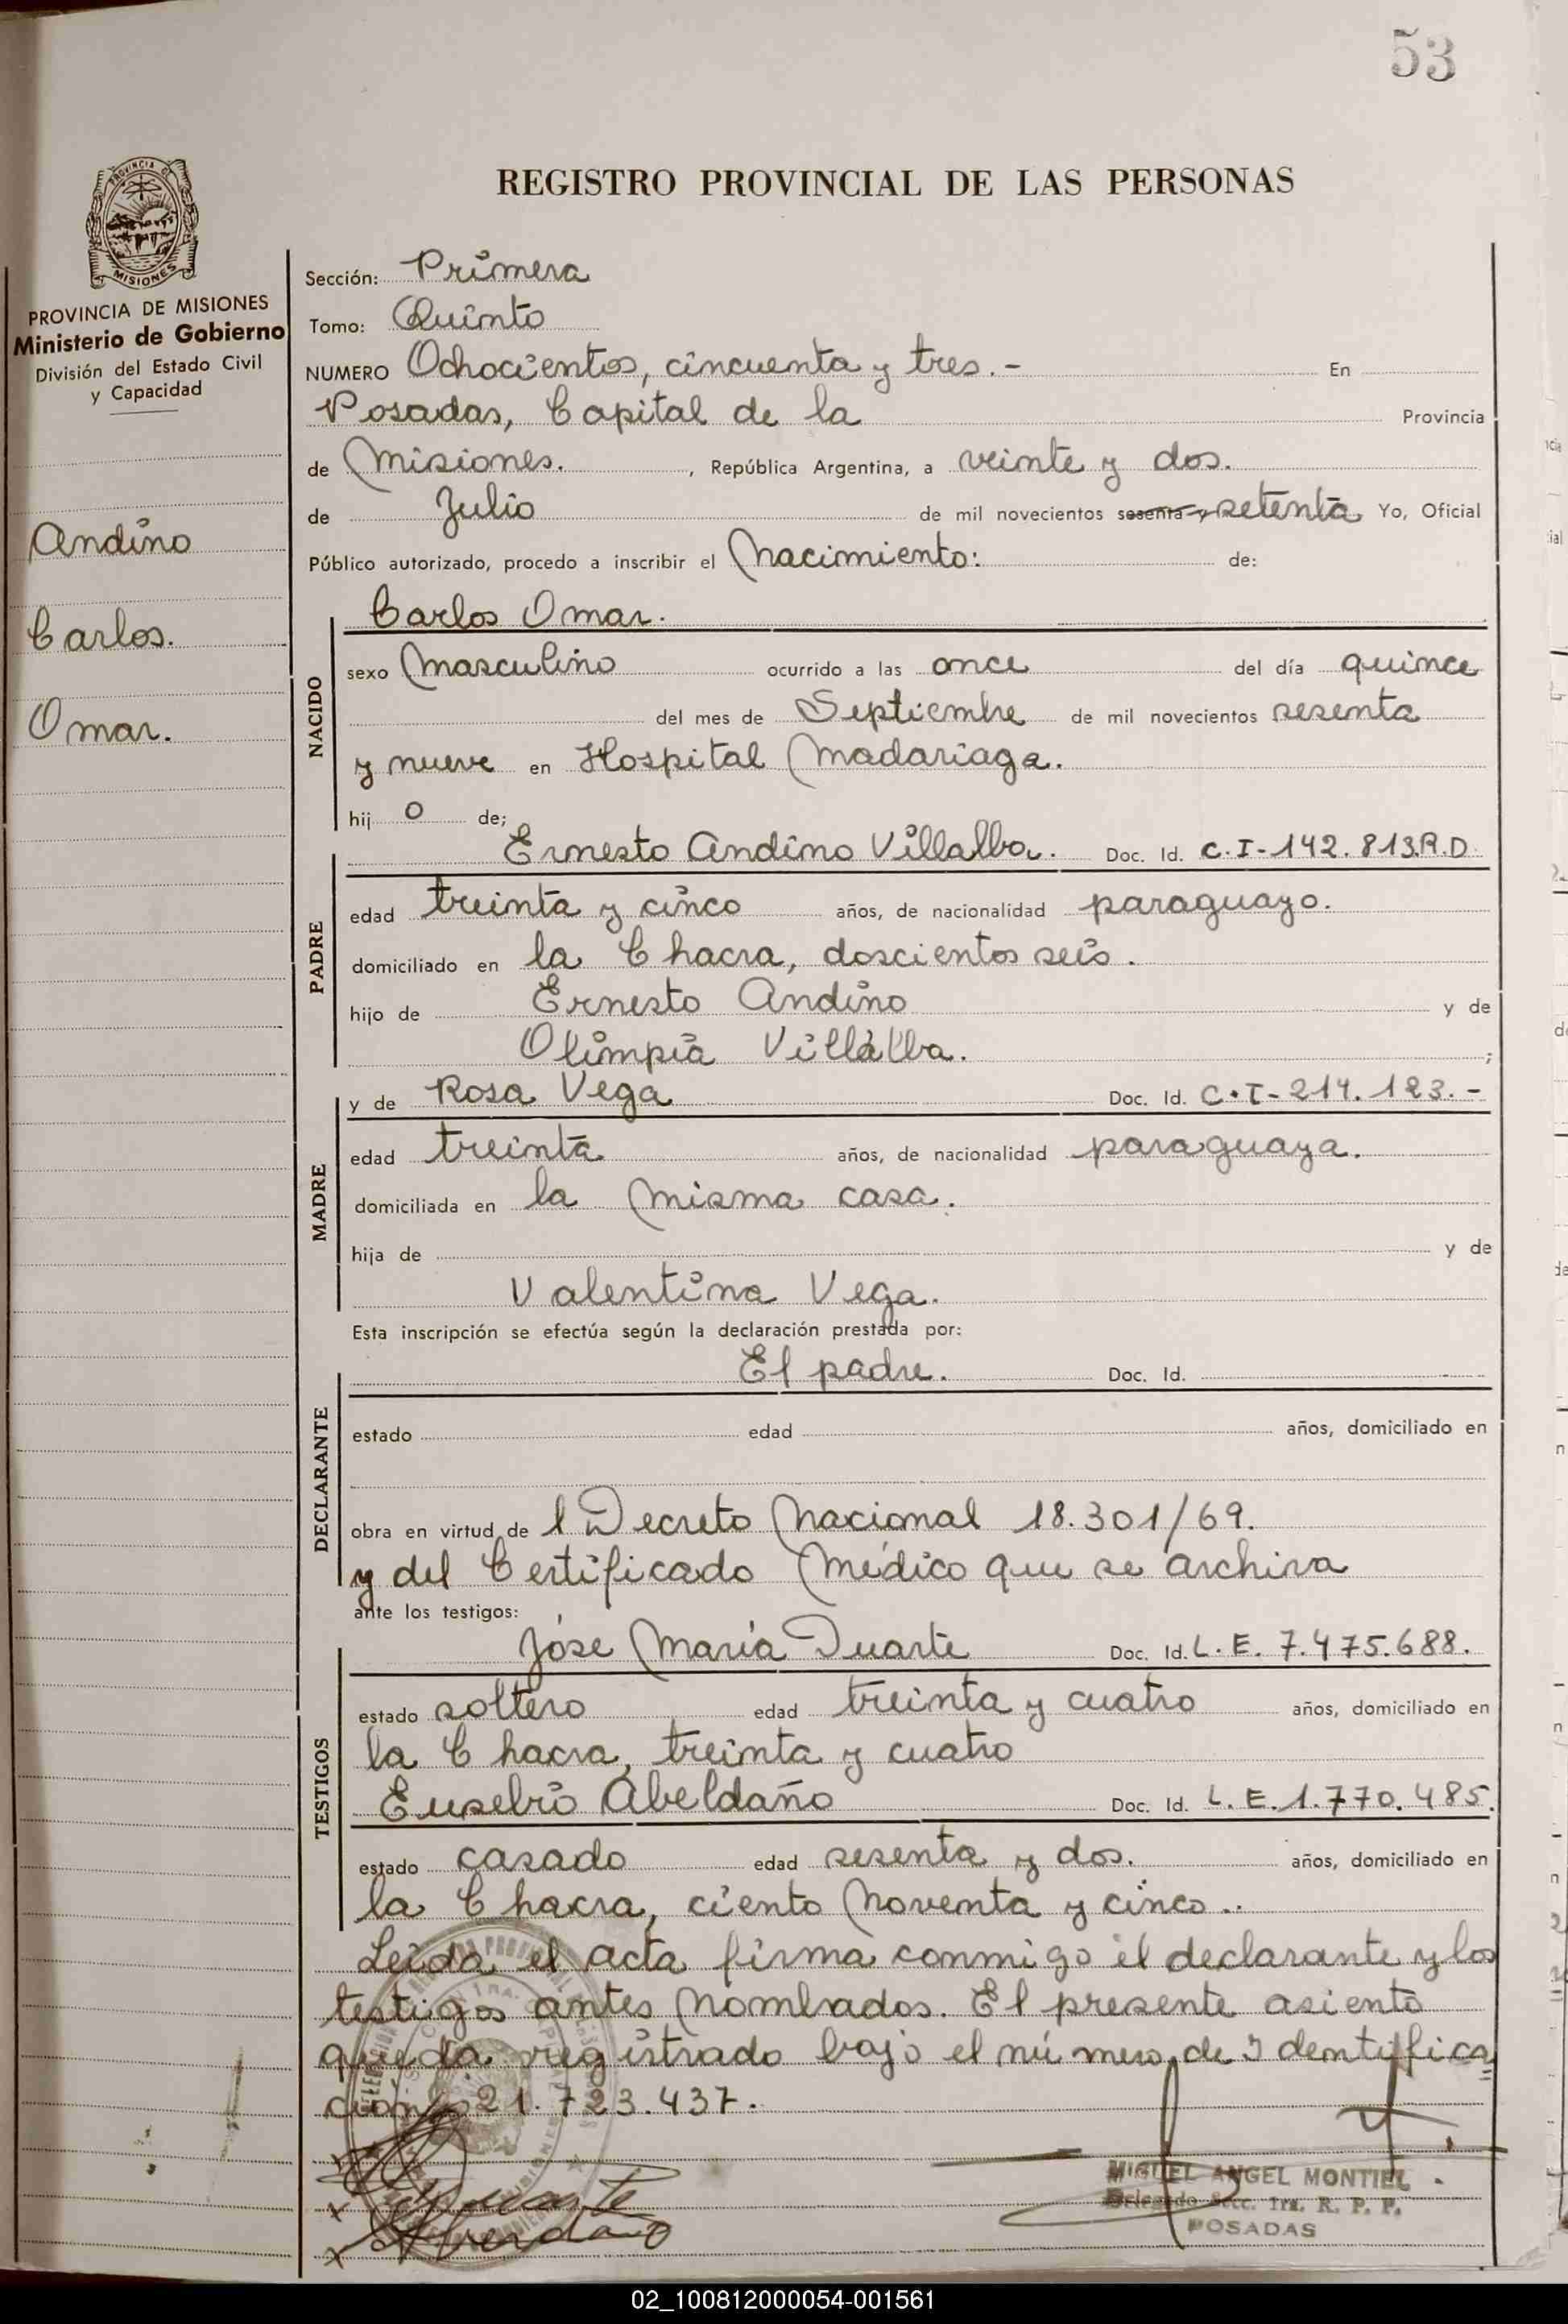 53
REGISTRO PROVINCIAL DE LAS PERSONAS
PROVINCIA DE
MISIONES
PROVINCIA DE MISIONES
Ministerio de Gobierno
División del Estado Civil
y Capacidad
Andino
Carlos.
Omar.
Sección: Primera
Tomo: Quinto
NUMERO Ochocientos, cincuenta y tres.- En
Posadas, Capital de la Provincia
de Misiones. , República Argentina, a veinte y dos.
de Julio de mil novecientos sesenta y setenta Yo, Oficial
Público autorizado, procedo a inscribir el Nacimiento: de:
Carlos Omar.
NACIDO
sexo Masculino ocurrido a las once del día quince
del mes de Septiembre de mil novecientos sesenta
y nueve en Hospital Madariaga.
hij o de;
PADRE
Ernesto Andino Villalba. Doc. Id. C.I-142.813.R.D.
edad treinta y cinco años, de nacionalidad paraguayo.
domiciliado en la Chacra, doscientos seis.
hijo de Ernesto Andino y de
Olimpia Villalba. ;
MADRE
y de Rosa Vega Doc. Id. C.I-214.123.-
edad treinta años, de nacionalidad paraguaya.
domiciliada en la misma casa.
hija de y de
Valentina Vega.
Esta inscripción se efectúa según la declaración prestada por:
DECLARANTE
El padre. Doc. Id.
estado edad años, domiciliado en
obra en virtud de l Decreto Nacional 18.301/69.
y del Certificado Médico que se archiva
ante los testigos:
TESTIGOS
Jóse María Duarte Doc. Id. L.E. 7.475.688.
estado soltero edad treinta y cuatro años, domiciliado en
la Chacra, treinta y cuatro
Eusebio Abeldaño Doc. Id. L.E.1.770.485.
estado casado edad sesenta y dos. años, domiciliado en
la Chacra, ciento noventa y cinco..
Leida el acta firma conmigo el declarante y los
testigos antes nombrados. El presente asiento
queda registrado bajo el número de Identifica
ción 21.723.437.
MIGUEL ANGEL MONTIEL
Delegado Secc. 1ra. R. P. P.
POSADAS
02_100812000054-001561